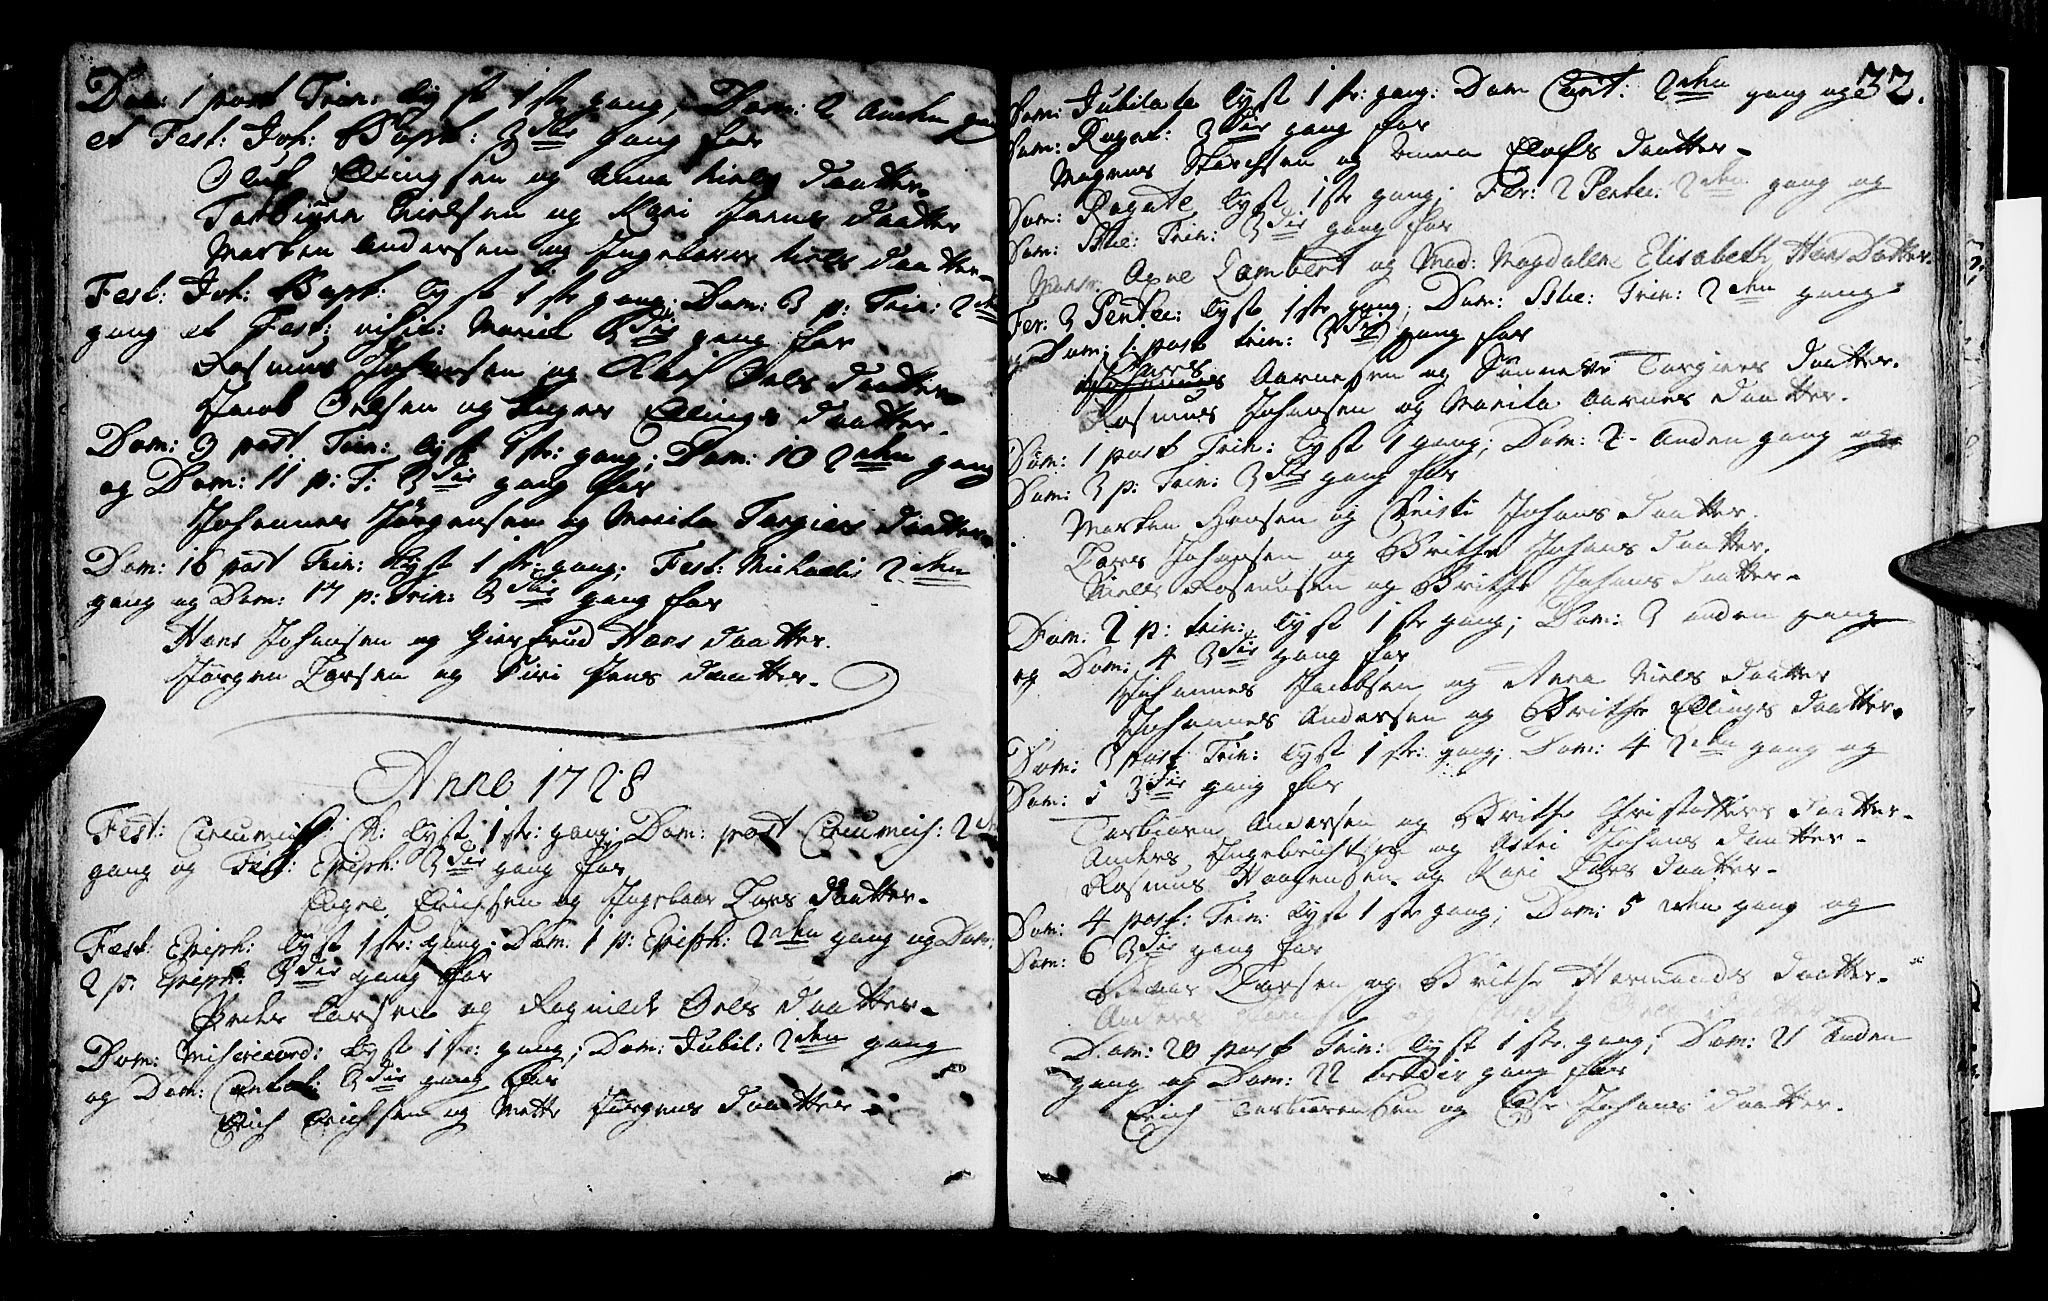 Dom: 1 post Trin: lyst 1 ste gang, Dom: 2 anden gang
et Fest: Joh: Bapt: 3die gang for
Oluf Ellingsen og Anna Niels daatter.
Torbiørn Nielsen og Kari Joens daatter
Morten Andersen og Ingeborre Niels daatter.
Fest: Joh: Bapt: lyst 1 ste gang; Dom: 3 p: Trin: 2den
gang et Fest: visit: Mariæ 3die gang for
Rasmus Johansen og Kari Oels daatter.
Jacob Oelsen og Ellings daatter.
Dom: 3 post Trin: lyst 1 ste: gang; Dom: 10 2den gang
og Dom: 11 p: T: 3die gang for
Johannes Jørgensen og Marita Torgiers daatter.
Dom: 16 post Trin: lyst 1 ste: gang; Fest: Michaelis 2den
gang og Dom: 17 p: Trin: 3die gang for
Hans Johansen og Giertrud Hans daatter.
Jørgen Larsen og Siri Jens daatter.
Anno 1728
Fest: Circumcis: Ch: lyst 1 ste: gang; Dom: post Circumcis: 2den
gang og Fest: Epiph: 3die gang for
Erichsen og Ingeboer Lars daatter.
Fest: Epiph: lyst 1 ste: gang; Dom: 1 p: Epiph: 2den gang og Dom:
2 p: Epiph: 3die gang for
Peder Larsen og Ragnilde Oels daatter.
Dom: Misericord: lyst 1 ste: gang; Dom: Jubil: 2den gang
og Dom: Cantat: 3die gang for
Erich Erichsen og Mette Jørgens daatter.
32.
Dom: Jubilate lyst 1 ste: gang: Dom Cant: 2den gang og
Dom: Rogat: 3die gang for
Mogens og Anna Olufs daatter.
Dom: Rogate lyst 1 ste gang; Fer: 2 Pentec: 2den gang og
Dom: Stæ: Trin: 3die gang for
Axel Lambert og Mad: Magdalene Elisabeth Hans Datter.
Fer: 3 Pentec: lyst 1 ste gang; Dom: Stæ: Trin: 2den gang
og Dom: 1: post trin: 3die gang for
Lars
Johannes Aarnesen og Sünneve Torgiers daatter.
Rasmus Johansen og Marita Aarnes daatter.
Dom: 1 post Trin: lyst 1 gang; Dom: 2 anden gang og
Dom: 3 p: Trin: 3die gang for
Morten Hansen og Christi Johans daatter.
Lars Johansen og Brithe Johans daatter.
Niels Rasmusen og Brithe Johans daatter.
Dom: 2 p: trin: lyst 1 ste gang; Dom: 3 anden gang
og Dom: 4 3die gang for
Johannes Jacobsen og Anna Niels daatter
Johannes Andersen og Brithe Ellings daatter.
Dom: 3 post: Trin: lyst 1 ste: gang; Dom: 4 2den gang og
Dom: 5 3die gang for
Torbiørn Andersen og Brithe Christoffers daatter.
Anders Ingebrichtsen og Astri Johans daatter.
Rasmus Haagensen og Kari Lars daatter.
Dom: 4 post: Trin: lyst 1 ste gang; Dom: 5 2den gang og
Dom: 6 3die gang for
Larsen og Brithe Hermands daatter.
Anders og Oels daatter
Dom: 20 post Trin: lyst 1 ste. gang; Dom: 21 anden
gang og Dom: 22 tredie gang for
Erich Torbiørensen og Else Johans daatter.